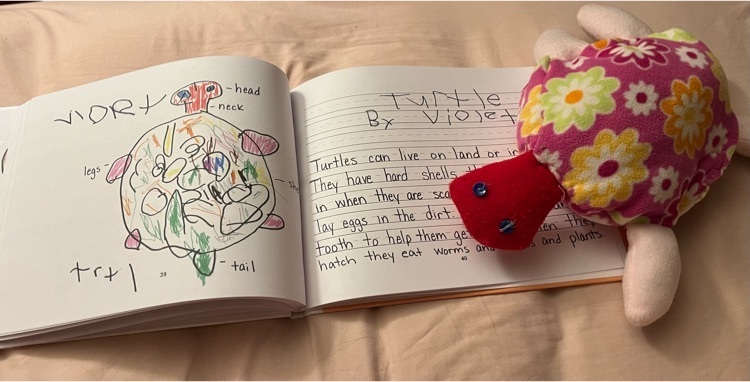 VIORT
-head
-neck
legs-
trtl
-tail
38
Turtle
By Violet
Turtles can live on land or in
They have hard shells
in when they are
lay eggs in the dirt.
tooth to help them
hatch they eat worms and plants.
40